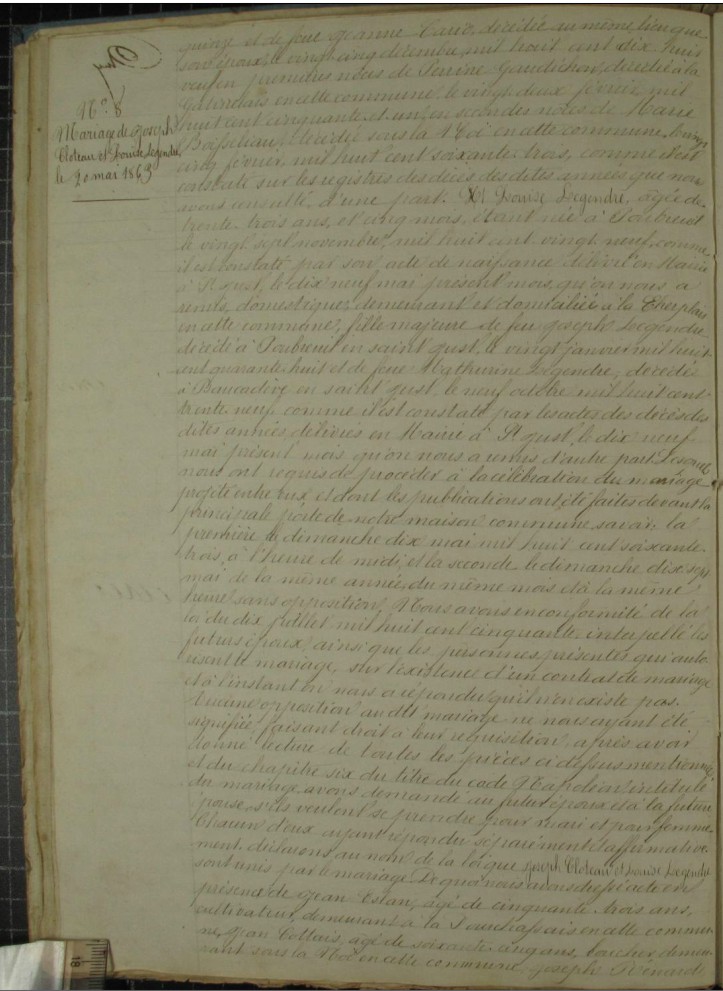 N° 8
Mariage de Joseph
Cloteau et Louise Legendre
le 20 mai 1863
quinze et de feue Jeanne décédée au même lieu que
son époux, le vingt cinq décembre, mil huit cent dix huit
veuf en premières noces de Perrine Gaudichon, décédée à la
en cette commune, le vingt deux février mil
huit cent cinquante et un, en secondes noces de Marie
décédée sous la Noë en cette commune, le vingt
cinq février mil huit cent soixante trois, comme il est
constaté sur les registres des décès des dites années que nous
avons consulté, d'une part. Et Louise Legendre, agée de
trente trois ans, et cinq mois, étant née à Poubreuil
le vingt sept novembre, mil huit cent vingt neuf, comme
il est constaté par son acte de naissance délivré en Mairie
à St Just, le dix neuf mai présent mois, qu'on nous a
remis, domestique, demeurant et domiciliée à la
en cette commune, fille majeure de feu Joseph Legendre
décédé à Poubreuil en saint Just, le vingt janvier mil huit
cent quarante huit et de feue Mathurine Legendre, décédée
à en saint Just, le neuf octobre mil huit cent
trente neuf comme il est constaté par les actes des décès des
dites années délivrés en Mairie à St Just, le dix neuf
mai présent mois qu'on nous a remis d'autre part. Lesquels
nous ont requis de procéder à la célébration du mariage
projeté entre eux et dont les publications ont été faites devant la
principale porte de notre maison commune, savoir: la
première le dimanche dix mai mil huit cent soixante
trois, à l'heure de midi, et la seconde le dimanche dix sept
mai de la même année, du même mois et à la même
heure, sans opposition, Nous avons en conformité de la
loi du dix juillet mil huit cent cinquante, interpellé les
futurs époux, ainsi que les personnes présentes qui auto
risent le mariage, sur l'existence d'un contrat de mariage
et à l'instant on nous a répondu qu'il n'en existe pas.
Aucune opposition au dit mariage ne nous ayant été
signifiée, faisant droit à leur requisition, après avoir
donné lecture de toutes les pièces ci dessus mentionnées
et du chapitre six du titre du code Napoléon intitulé
du mariage, avons demandé au futur époux et à la future
épouse, s'ils veulent se prendre pour mari et pour femme.
Chacun d'eux ayant répondu séparément et affirmative
ment, déclarons au nom de la loi que Joseph Cloteau et Louise Legendre
sont unis par le mariage. De quoi nous avons dressé acte en
présence de Jean Eslan, agé de cinquante trois ans,
cultivateur, demeurant à la en cette commu
ne, Jean Collais, agé de soixante cinq ans, boucher, demeu
rant sous la Noë en cette commune, Joseph